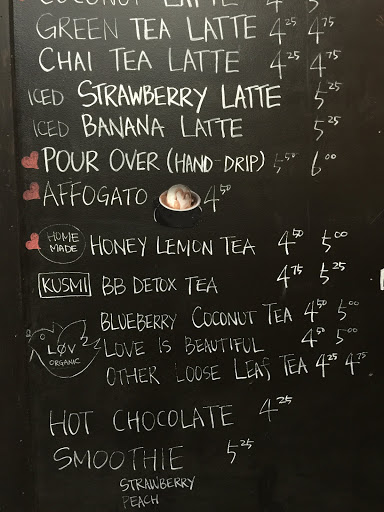 COCONUT LATTE 4 5
GREEN TEA LATTE 4.25 4.75
CHAI TEA LATTE 4.25 4.75
ICED STRAWBERRY LATTE 5.25
ICED BANANA LATTE 5.25
POUR OVER (HAND-DRIP) 5.50 6.00
AFFOGATO 4.50
HOME MADE HONEY LEMON TEA 4.50 5.00
KUSMI BB DETOX TEA 4.75 5.25
BLUEBERRY COCONUT TEA 4.50 5.00
LØV ORGANIC LOVE IS BEAUTIFUL 4.50 5.00
OTHER LOOSE LEAF TEA 4.25 4.75
HOT CHOCOLATE 4.25
SMOOTHIE 5.25
STRAWBERRY
PEACH